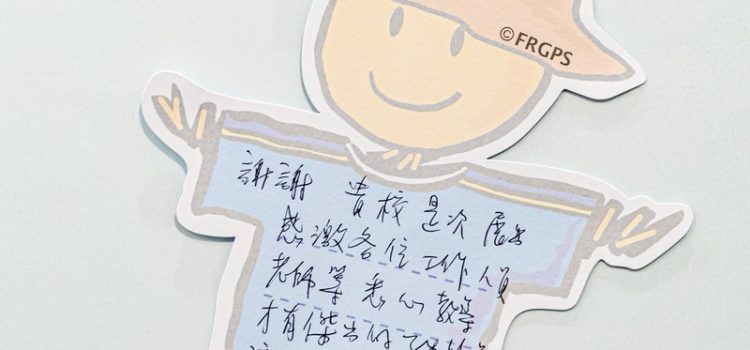 ©FRGPS
謝謝 貴校是次展出
感激各位工作人員
老師等悉心教學
才有傑出的